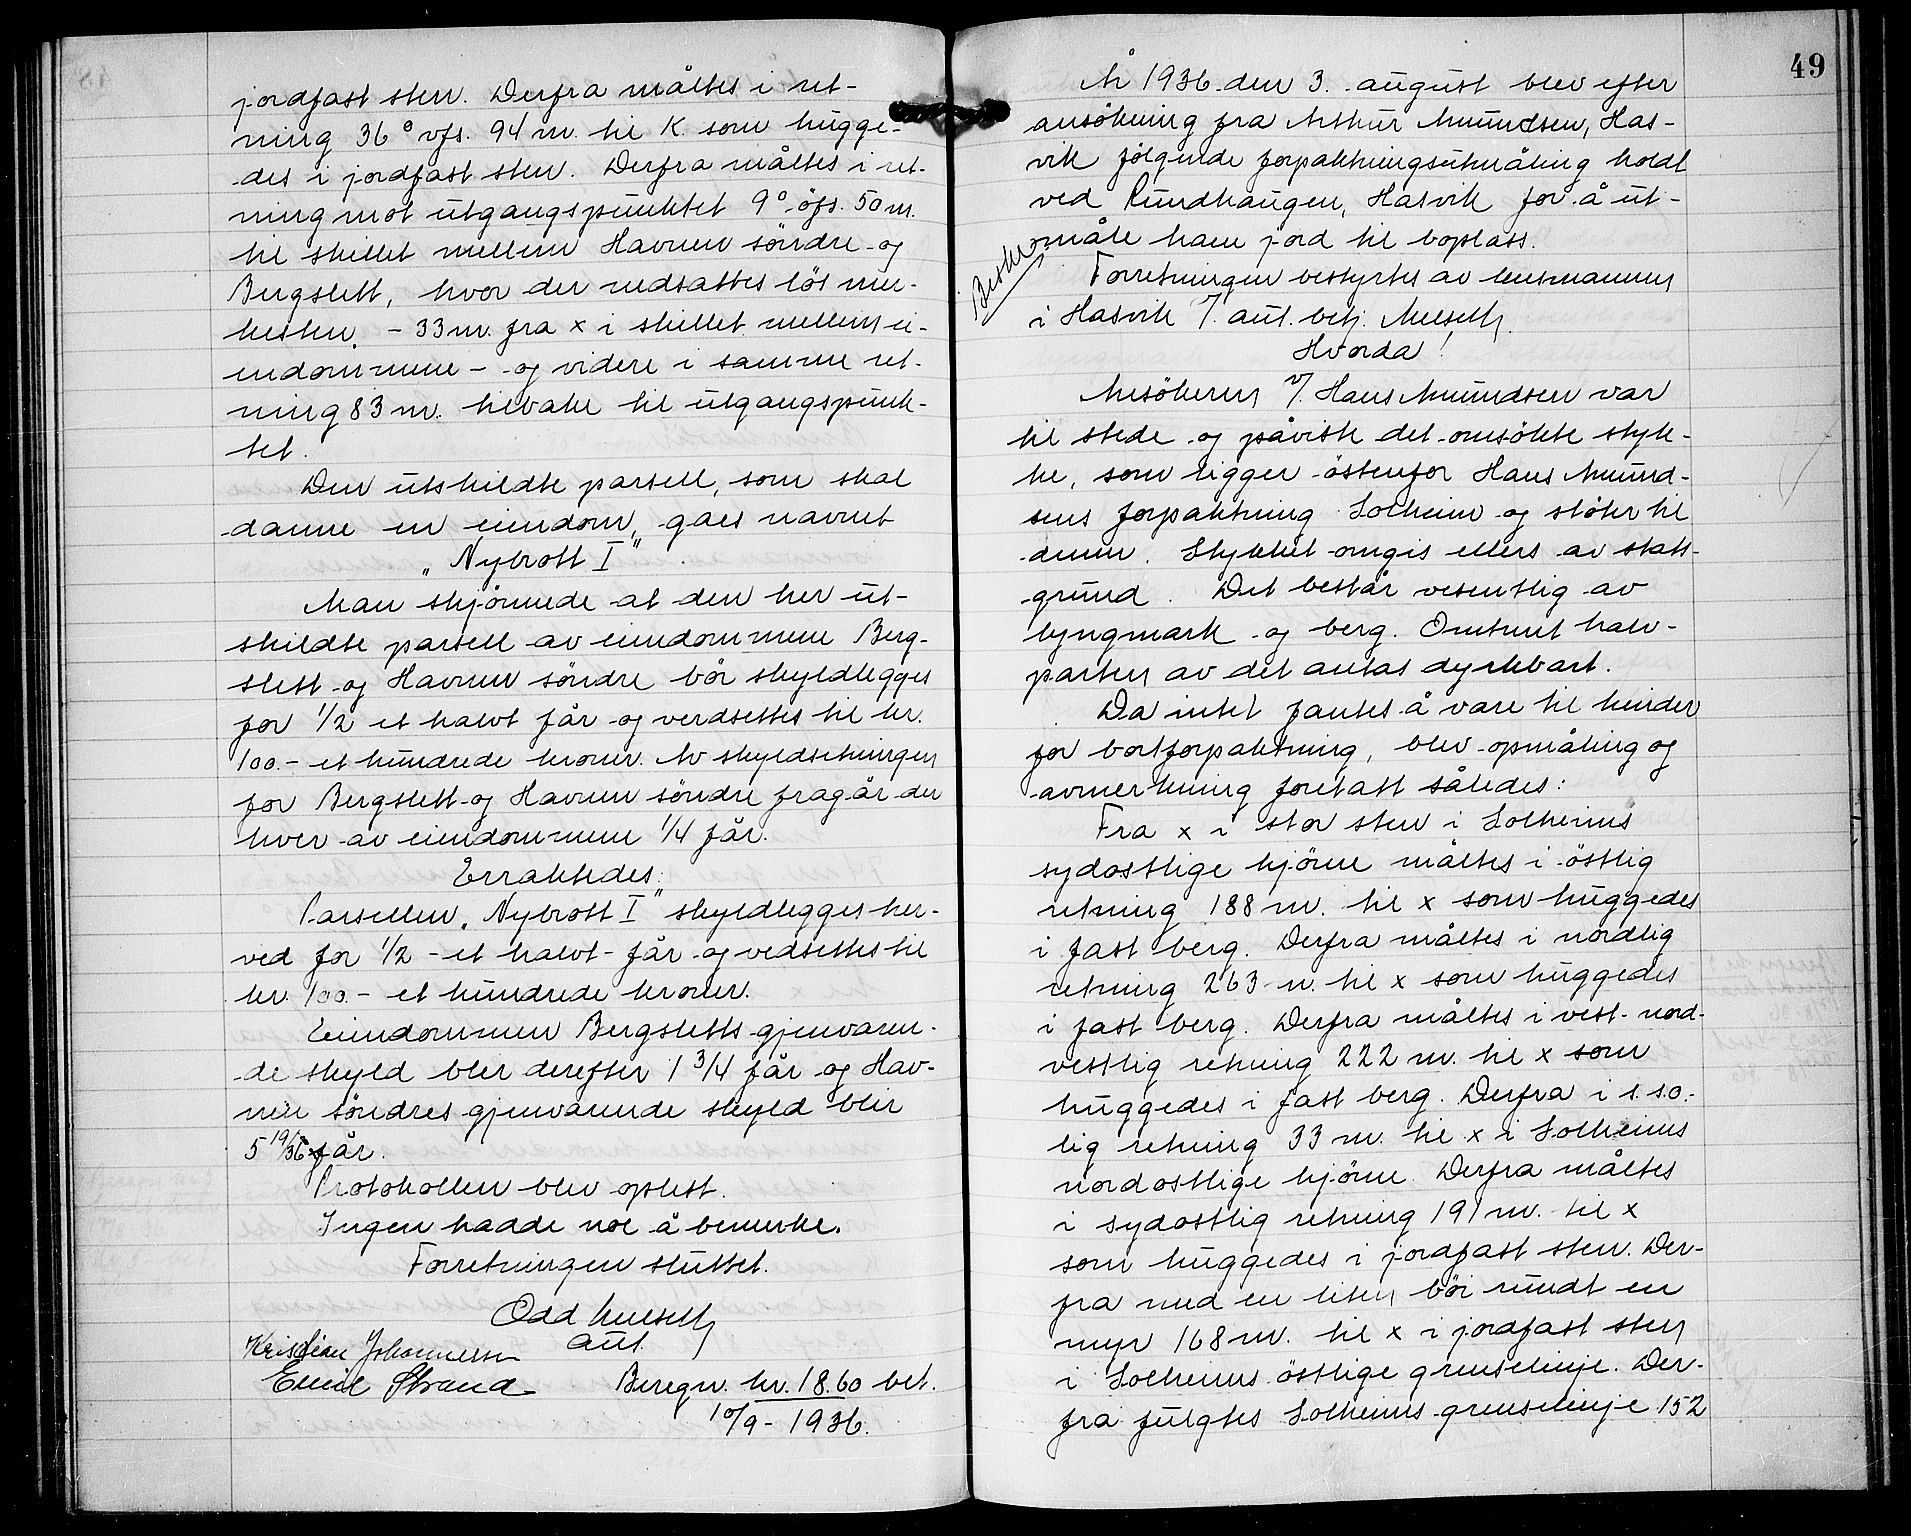 jordfast sten. Derfra måltes i ret-
ning 36° vfs. 94 m. til K som hugge-
des i jordfast sten. Derfra måltes i ret-
ning mot utgangspunktet 9° öfs. 50 m.
til skillet mellem Havnen söndre og
Bergslett, hvor der nedsattes lös mer-
kesten. - 33 m. fra x i skillet mellem ei-
endommene - og videre i samme ret-
ning 83 m. tilbake til utgangspunk-
tet.
Den utskildte parsell, som skal
danne en eiendom, gaes navnet
„Nybrott I"
Man skjönnede at den her ut-
skildte parsell av eiendommene Berg-
slett og Havnen söndre bör skyldlegges
for 1/2 et halvt får og verdsettes til kr.
100.- et hundrede kroner. Av skyldsetningen
for Bergslett og Havnen söndre fragår der
hver av eiendommene 1/4 får.
Erraktedes:
Parsellen „Nybrott I" skyldlegges her-
ved for 1/2 - et halvt - får og vedsettes til
kr. 100.- et hundrede kroner.
Eiendommen Bergsletts gjenværen-
de skyld blir derefter 1 3/4 får og Hav-
nen söndres gjenværende skyld blir
5 19/36 får.
Protokollen blev oplest.
Ingen hadde noe å bemerke.
Forretningen sluttet.
Odd
aut.
Kristian Johannessen
Emil Strand Beregn. kr. 18.60 bet.
10/9 - 1936.
49
År 1936 den 3. august blev efter
ansökning fra Arthur Amundsen, Has-
vik fölgende forpaktningsutmåling holdt
ved Rundhaugen, Hasvik for å ut-
måle ham jord til boplass.
Beskr.
Forretningen bestyrtes av lensmannen
i Hasvik v/ aut. betj.
Hvorda!
Ansökeren v/ Hans Amundsen var
til stede og påviste det omsökte styk-
ke, som ligger östenfor Hans Amund-
sens forpaktning Solheim og stöter til
denne. Stykket omgis ellers av stats-
grund. Det består vesentlig av
lyngmark og berg. Omtrent halv-
parten av det antas dyrkbart.
Da intet fantes å være til hinder
for bortforpaktning, blev opmåling og
avmerkning foretatt således:
Fra x i stor sten i Solheims
sydostlige hjörne måltes i östlig
retning 188 m. til x som huggedes
i fast berg. Derfra måltes i nordlig
retning 263 m. til x som huggedes
i fast berg. Derfra måltes i vest-nord-
vestlig retning 222 m. til x som
huggedes i fast berg. Derfra i s.s.o.-
lig retning 33 m. til x i Solheims
nordostlige hjörne. Derfra måltes
i sydostlig retning 191 m. til x
som huggedes i jordfast sten. Der-
fra med en liten böi rundt en
myr 168 m. til x i jordfast sten
i Solheims östlige grenselinje. Der-
fra fulgtes Solheims grenselinje 152